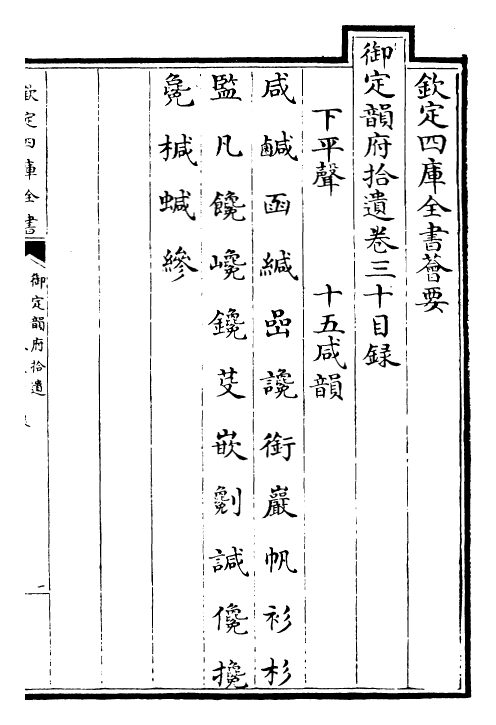 欽定四庫全書薈要
御定韻府拾遺卷三十目録
下平聲 十五咸韻
咸鹹函緘喦讒銜巖帆衫杉
監凡饞巉鑱芟嵌劖諴儳攙
毚椷蝛縿
欽定四庫全書
御定韻府拾遺